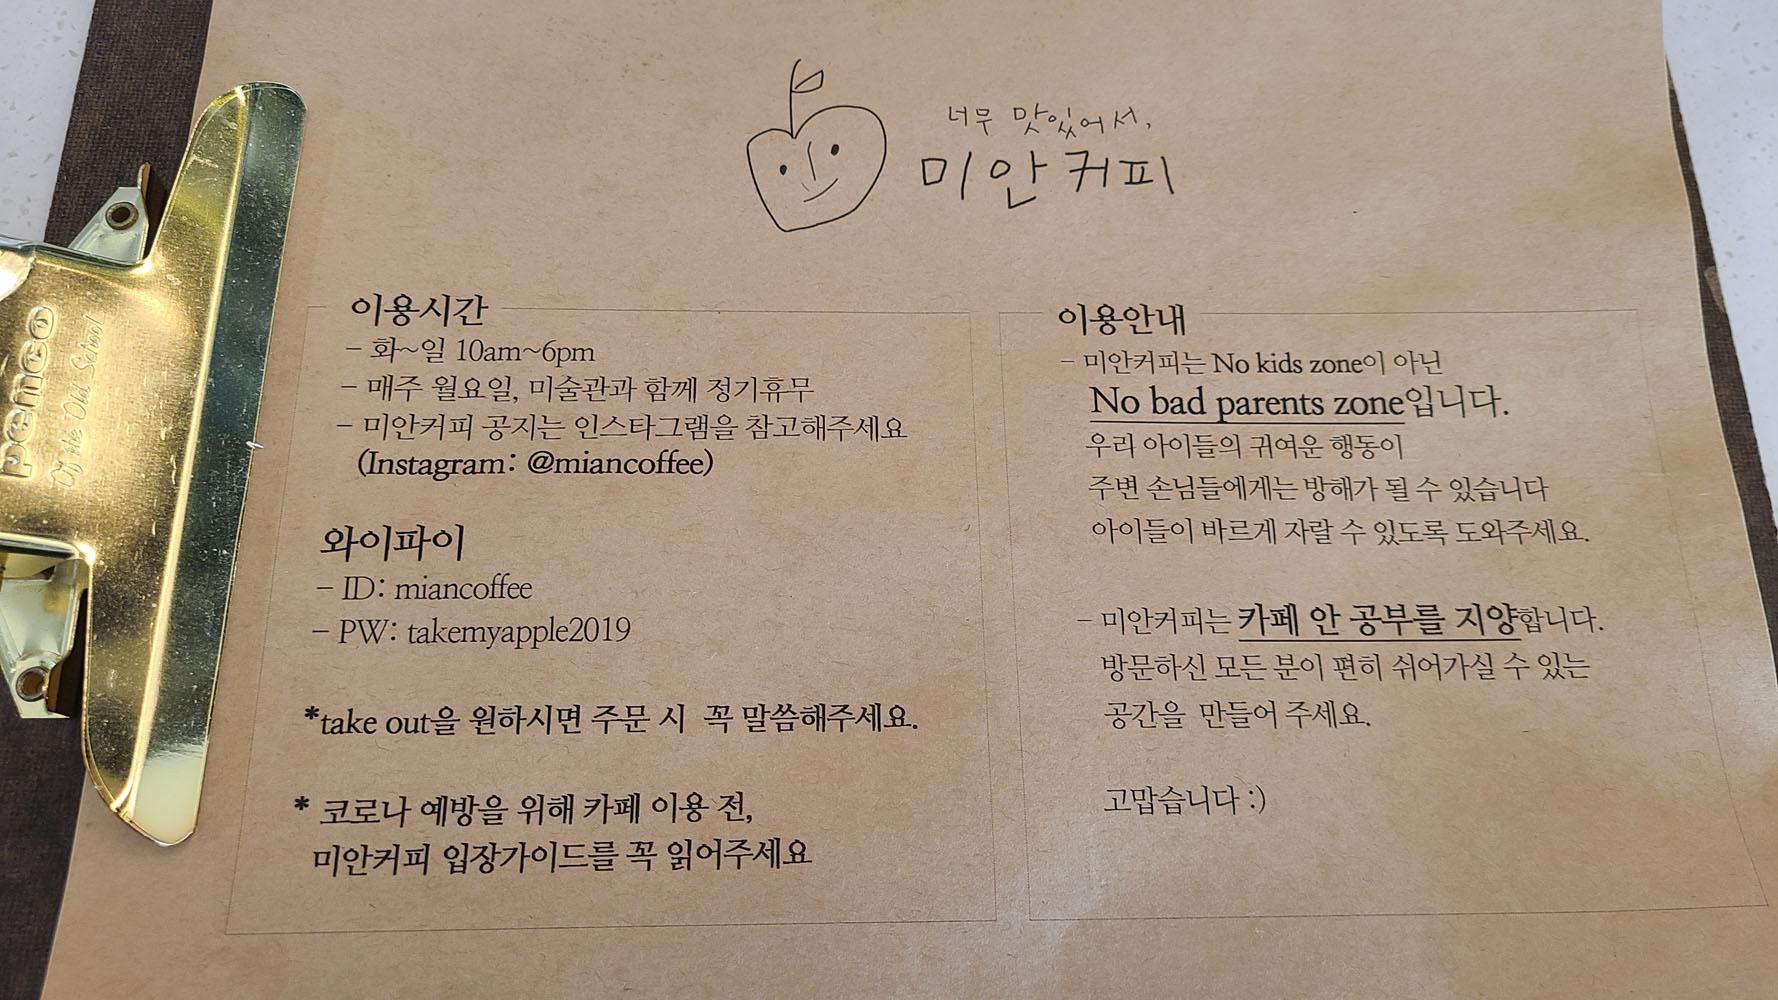 너무 맛있어서,
미안커피
이용시간
- 화~일 10am~6pm
- 매주 월요일, 미술관과 함께 정기휴무
- 미안커피 공지는 인스타그램을 참고해주세요
(Instagram: @miancoffee)
와이파이
- ID: miancoffee
- PW: takemyapple2019
*take out을 원하시면 주문 시 꼭 말씀해주세요.
* 코로나 예방을 위해 카페 이용 전,
미안커피 입장가이드를 꼭 읽어주세요
이용안내
- 미안커피는 No kids zone이 아닌
No bad parents zone입니다.
우리 아이들의 귀여운 행동이
주변 손님들에게는 방해가 될 수 있습니다
아이들이 바르게 자랄 수 있도록 도와주세요.
- 미안커피는 카페 안 공부를 지양합니다.
방문하신 모든 분이 편히 쉬어가실 수 있는
공간을 만들어 주세요.
고맙습니다 :)
penco
Old School